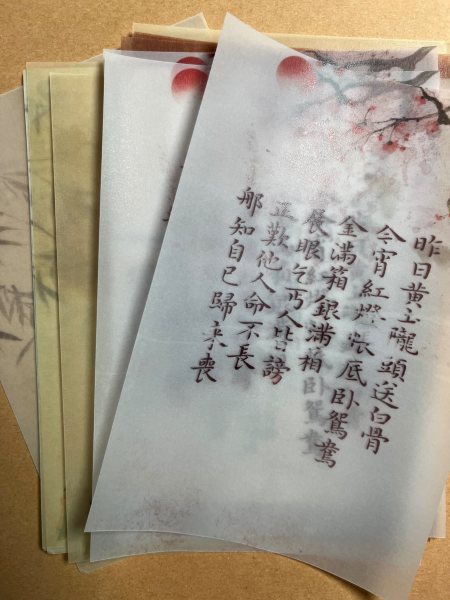 昨日黄土隴頭送白骨
今宵紅燈帳底卧鴛鴦
金滿箱銀滿箱
展眼乞丐人皆謗
正歎他人命不長
那知自己歸來喪